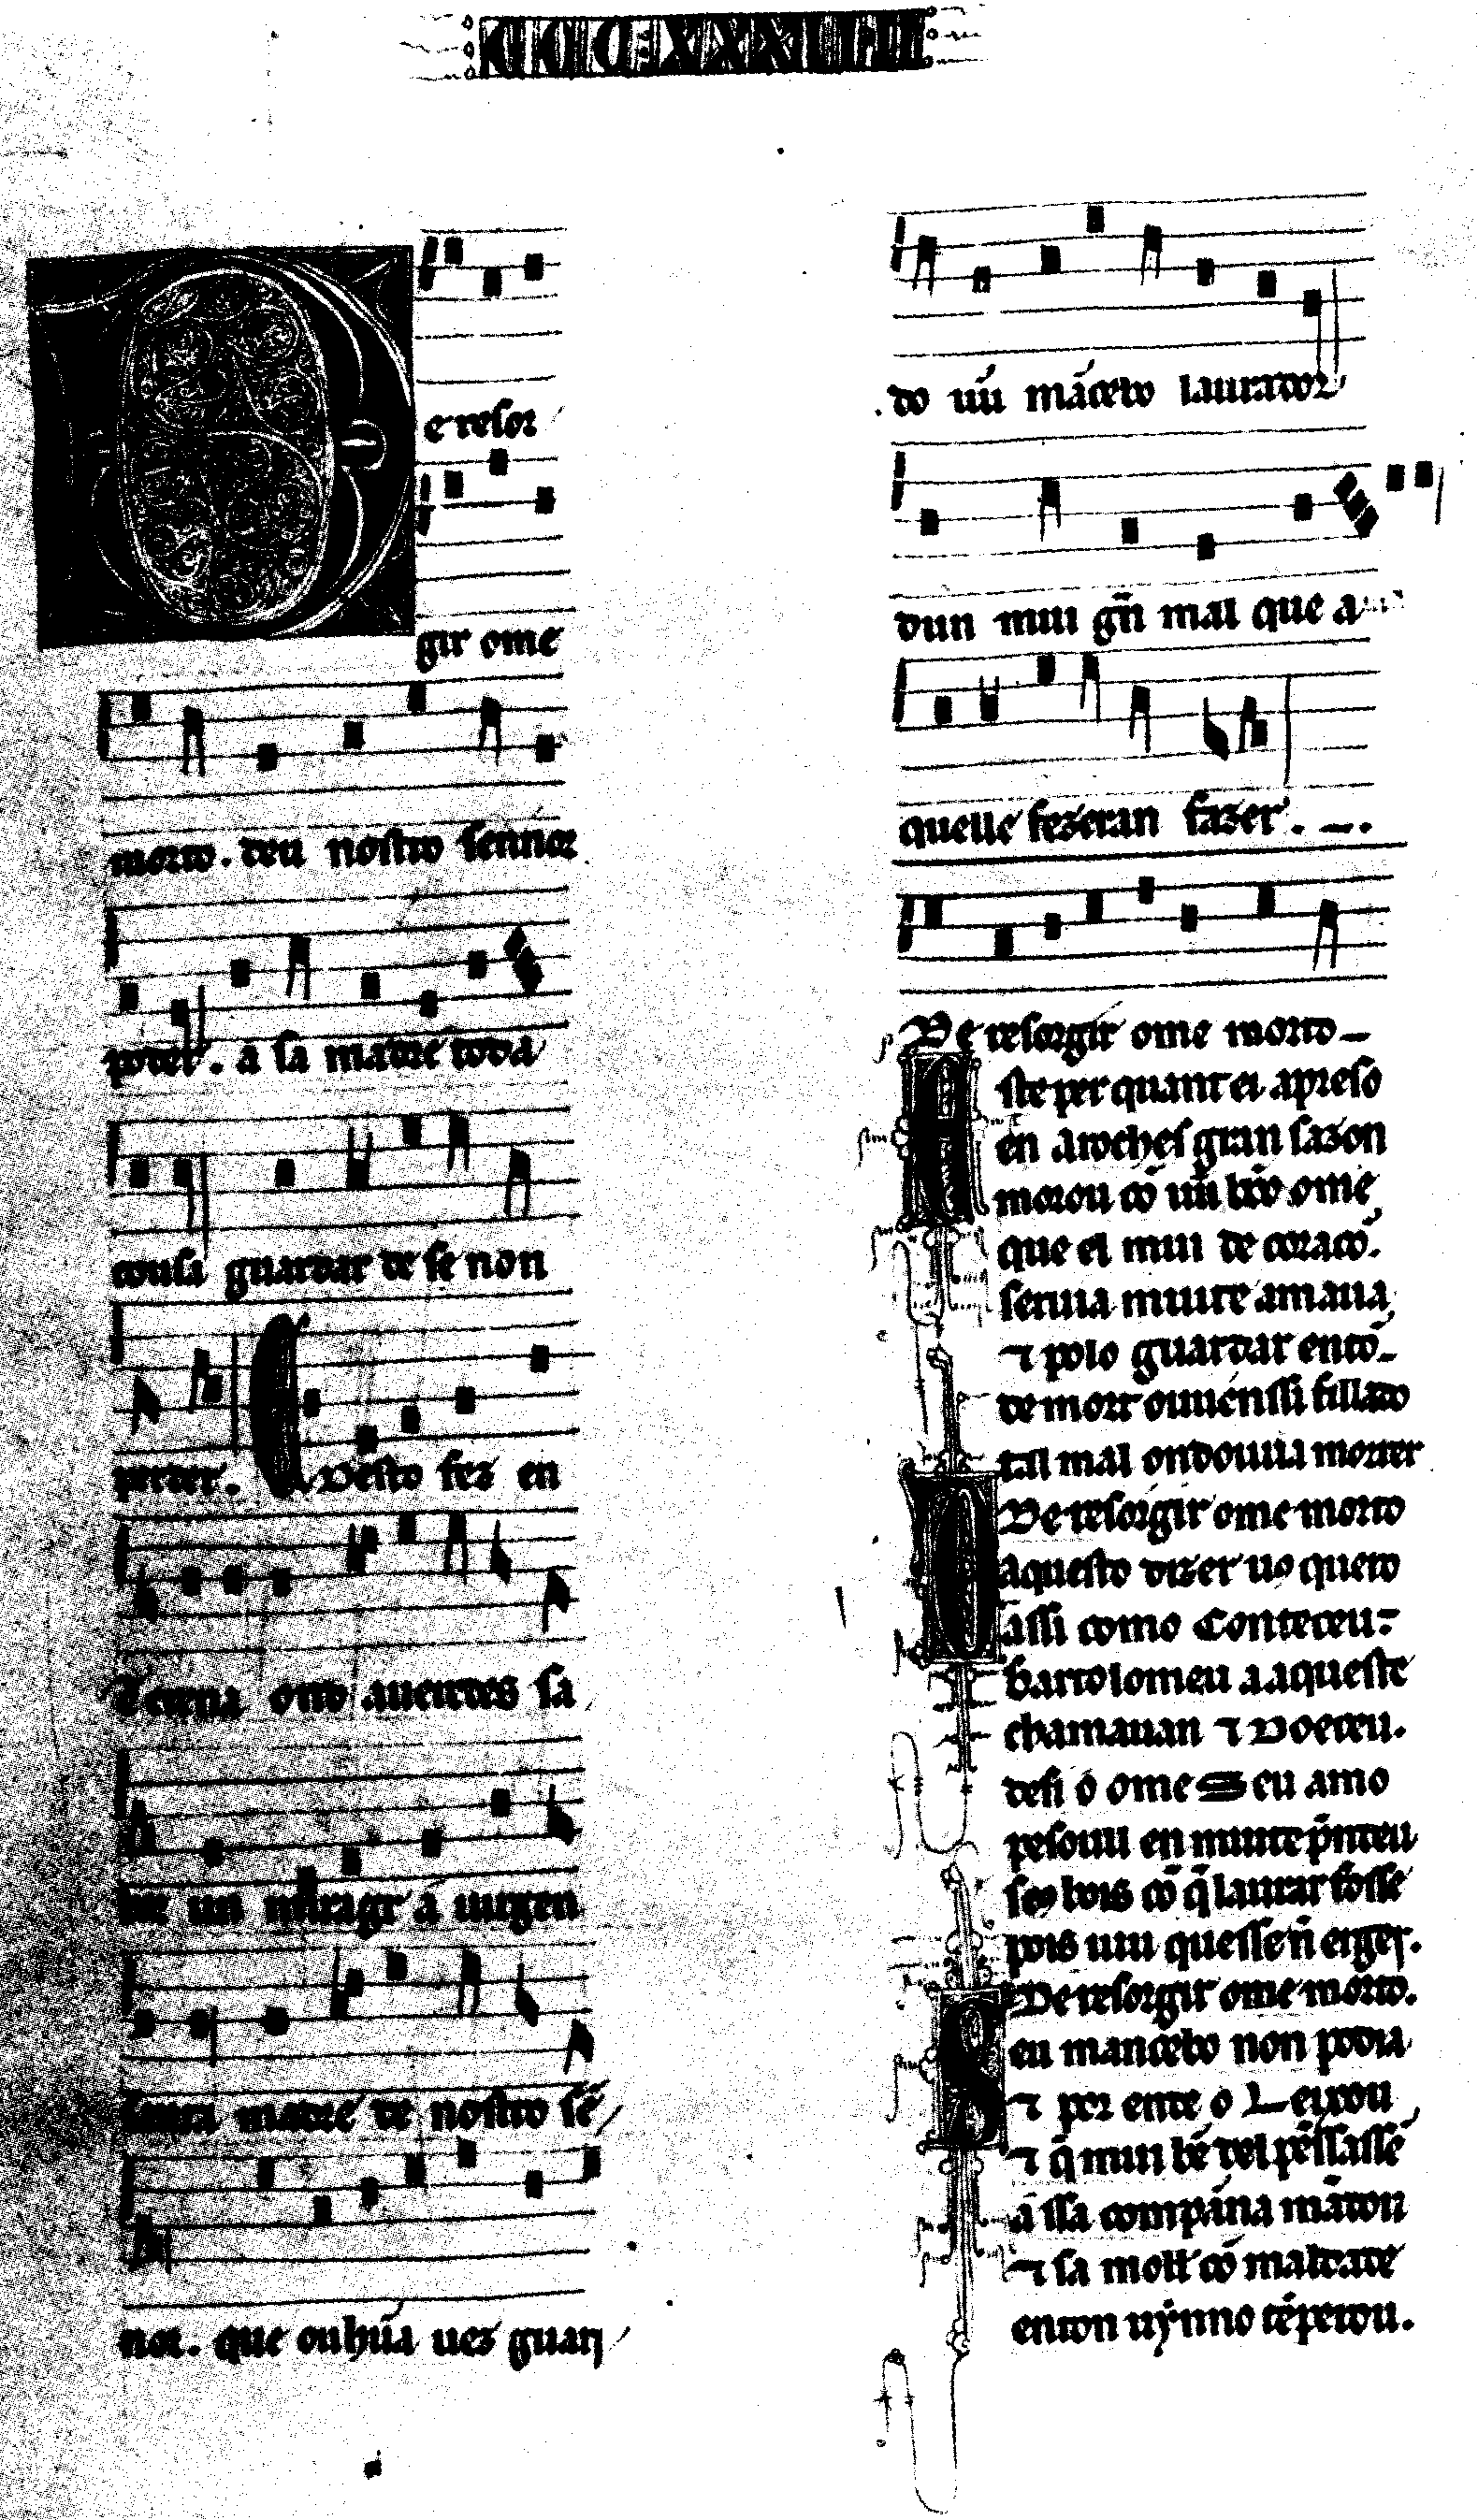 CCCXXXIIII
De resor
gir ome
morto. deu nostro sennor
poder. a sa madre toda
cousa guardar de se non
perder. Desto fez en
Terena ond auertudes sa
hun miragr a uirgen
santa madre de nostro sẽ
nor. que ouhũa uez guari
do uũ mãcebo laurador
dun mui gñ mal que a
quelle fezeran fazer.
De resorgir ome morto
Este per quant ei apreso
en aroches gran sazon
morou cõ uũ bõo ome
que el mui de coraçõ.
seruia muit e amaua
⁊ polo guardar entõ
de mort ouuéinssi fillado
tal mal ondouuia morrer
De resorgir ome morto
Daquesto dizer uos quero
assi como Conteceu:
Bartolomeu a aqueste
chamauan ⁊ Doeceu.
desi o ome Seu amo
pesoull en muit e p̃nteu
seos bois cõ q̃ laurar fosse
pois uiu quesseñ erger.
De resorgir ome morto.
Seu mancebo non podia
⁊ por ende o Leixou
⁊ q̃ mui bẽ del pẽssasse
a ssa compãna mãdou
⁊ sa moll cõ maldade
enton uỹnno tẽperou.